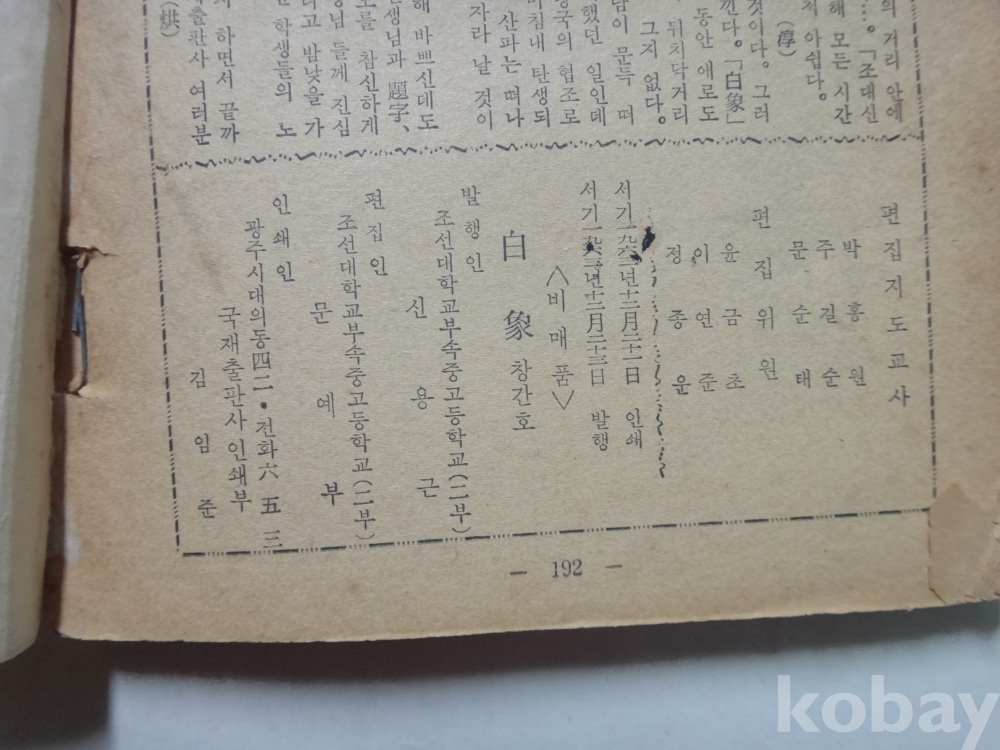 의 거리 안에
…. 「조대신
해 모든 시간
척 아쉽다.
것이다. 그러
낀다. 「白象」
동안 애로도
뒤치닥거리
그지 없다.
남이 문득 떠
했던 일인데
당국의 협조로
마침내 탄생되
산파는 떠나
자라 날 것이
해 바쁘신데도
생님과 題字、
를 참신하게
생님 들께 진심
리고 밤낮을 가
학생들의 노
하면서 끝까
출판사 여러분
(烘)
편집지도교사
박흥원
주길순
문순태
편집위원
윤금초
이연준
정종윤
서기一九六三년十二월二十一日 인쇄
서기一九六三년十二월二十三日 발행
<비매품>
白象 창간호
발행인
조선대학교부속중고등학교(二부)
신용근
편집인
조선대학교부속중고등학교(二부)
문예부
인쇄인
광주시대의동四二•전화六五三
국제출판사인쇄부
김임준
— 192 —
kobay